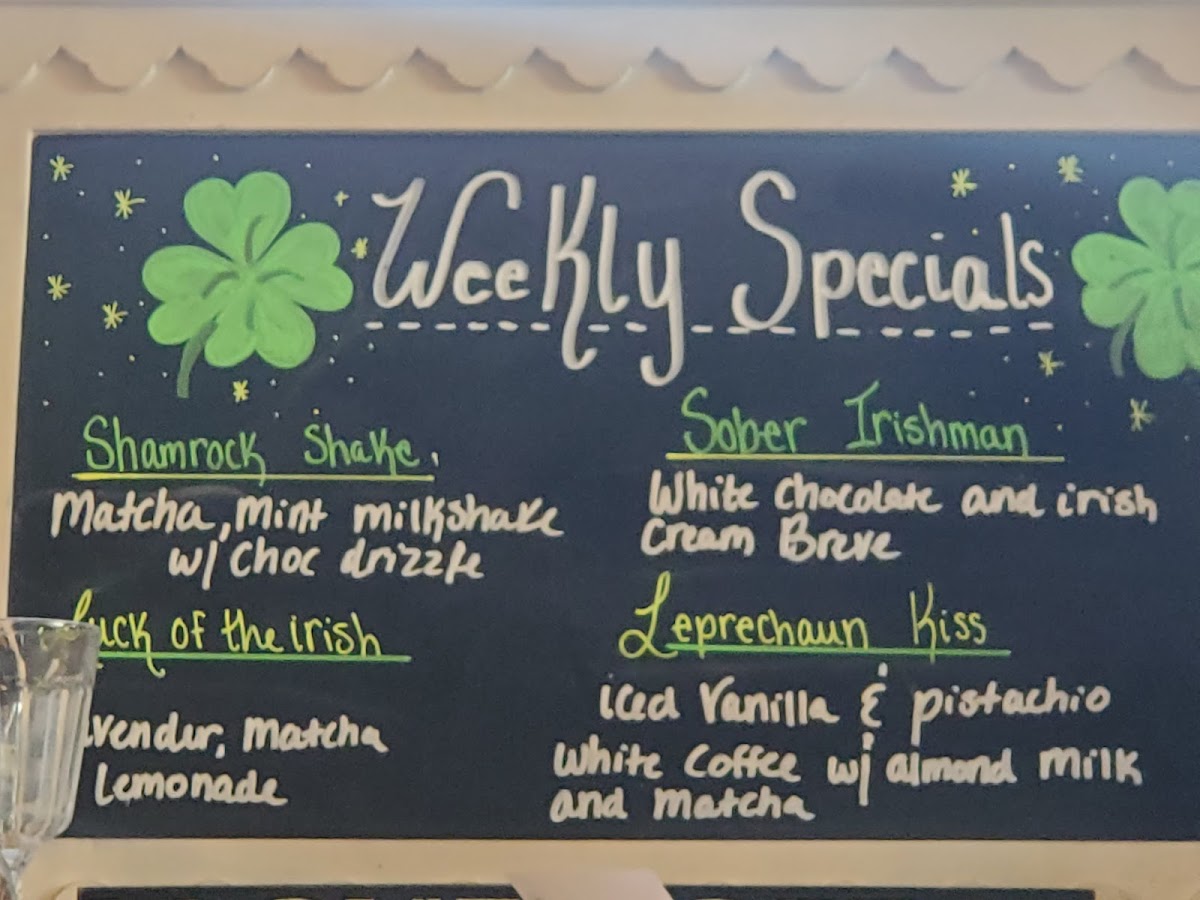 Weekly Specials
Shamrock Shake
Matcha, mint milkshake
w/ choc drizzle
Luck of the irish
vender, Matcha
Lemonade
Sober Irishman
White chocolate and irish
cream Breve
Leprechaun Kiss
iced Vanilla & pistachio
White Coffee w/ almond milk
and Matcha